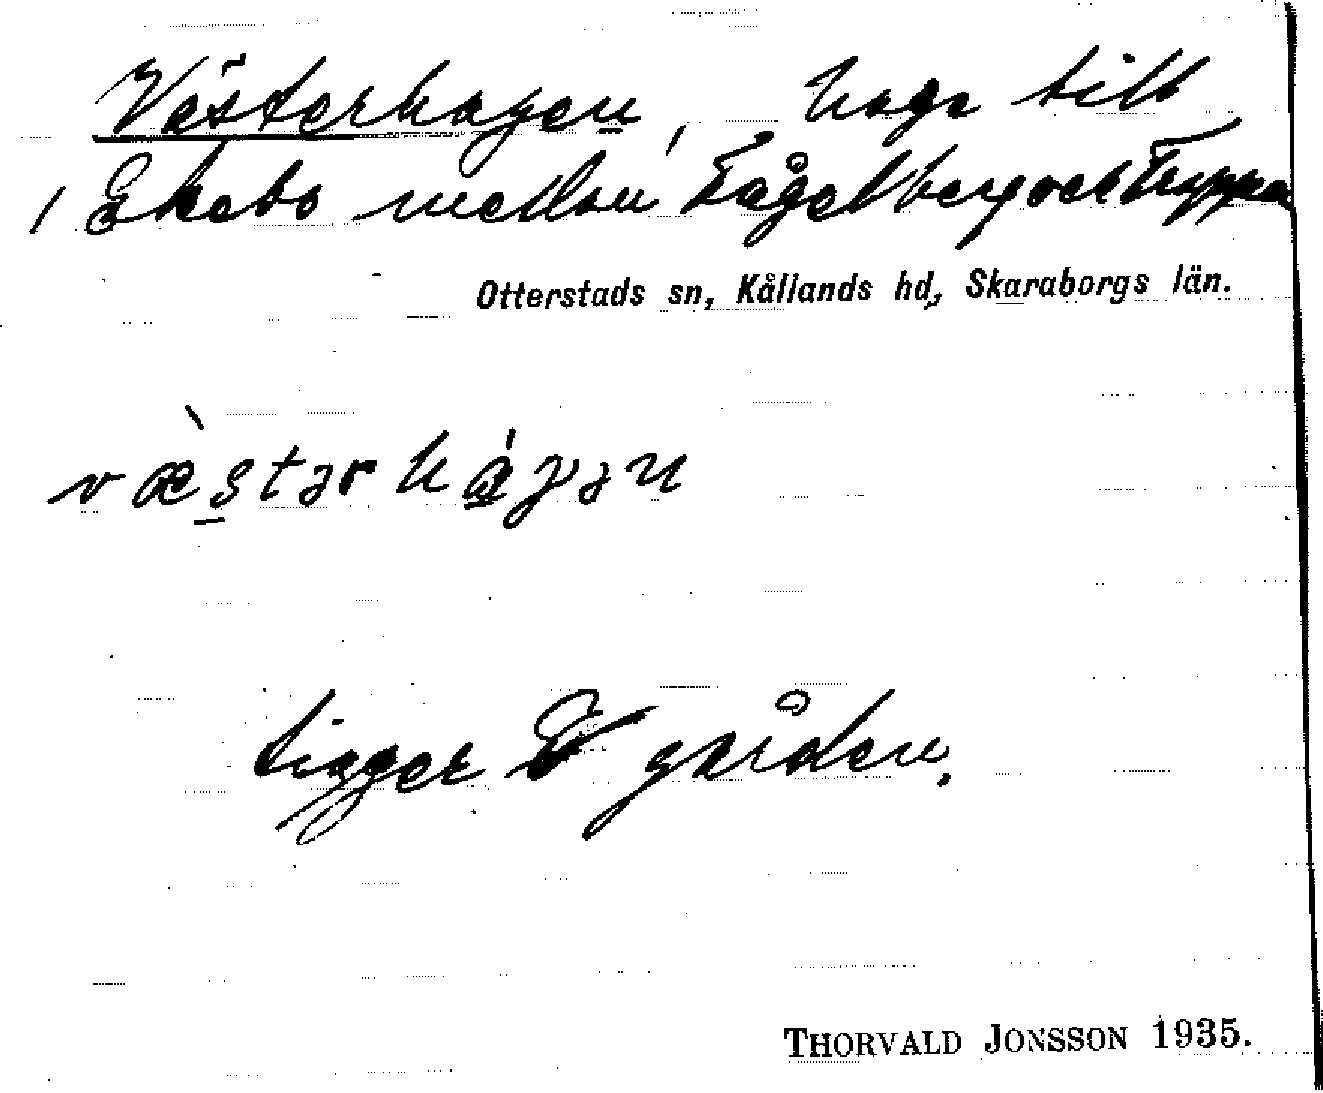 Västerhagen, hage till
Ekebo mellan Fågelberg och Trappa
Otterstads sn, Kållands hd, Skaraborgs län.
væ̀stərhágən
Ligger V gården.
THORVALD JONSSON 1935.